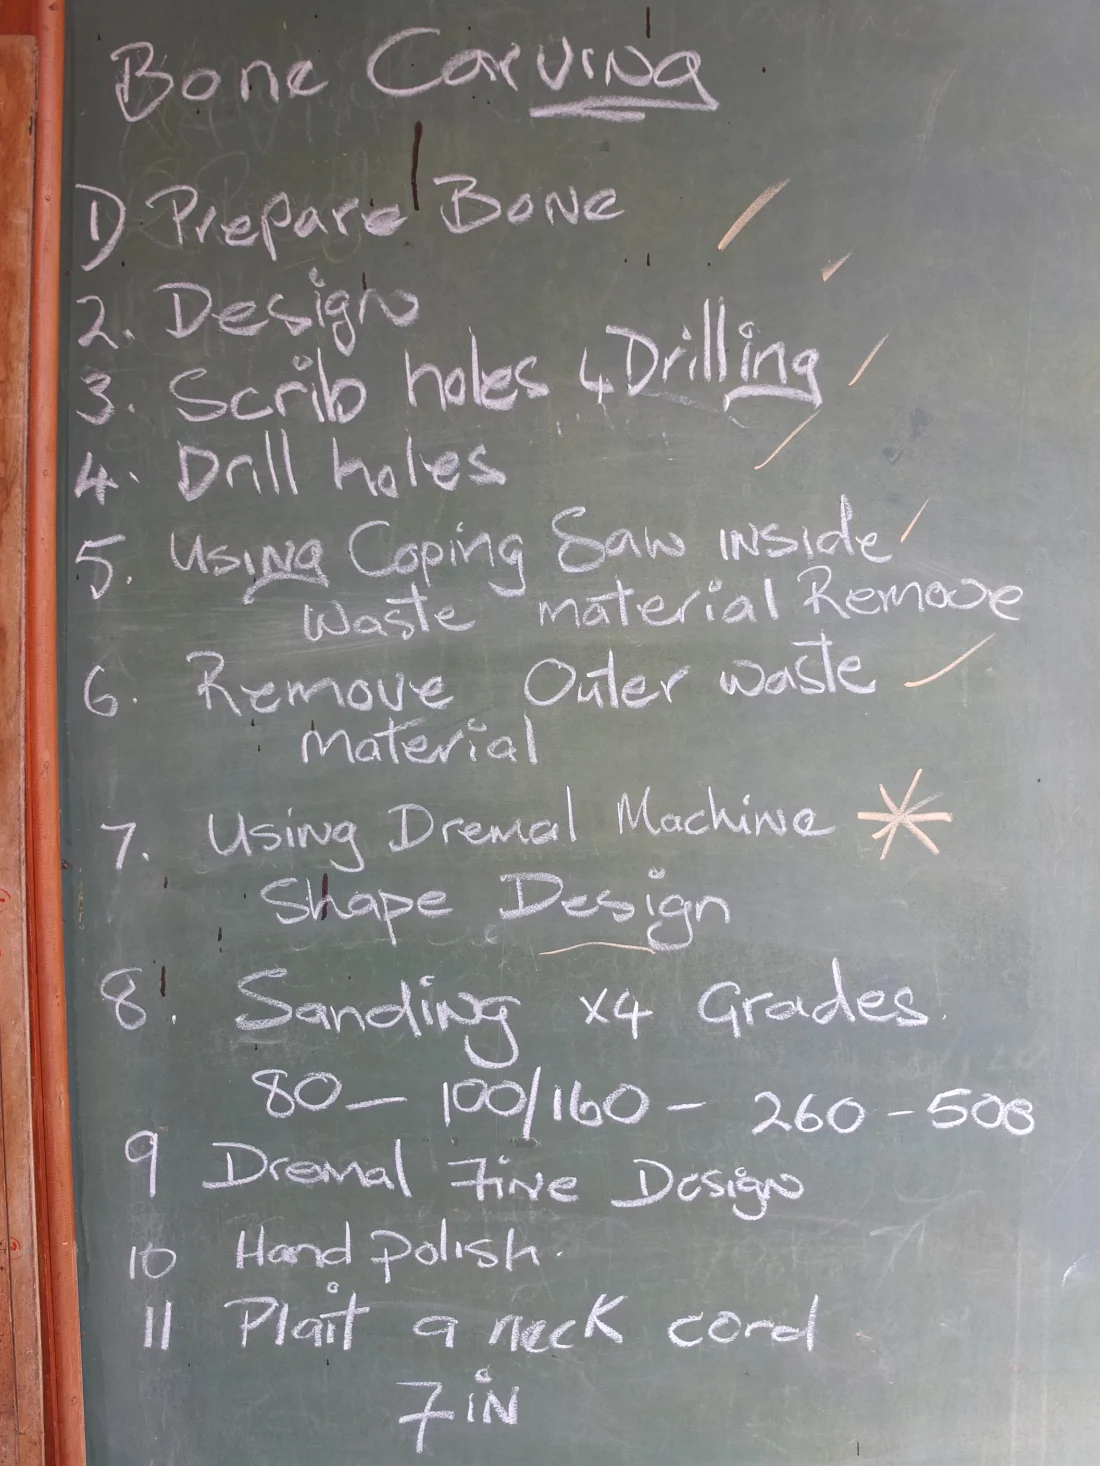 Bone Carving
1) Prepare Bone
2. Design
3. Scrib holes 4 Drilling
4. Drill holes
5. Using Coping Saw inside
waste material Remove
6. Remove Outer waste
material
7. Using Dremal Machine *
Shape Design
8. Sanding x4 Grades.
80 - 100/160 - 260 - 500
9 Dremal Fine Design
10 Hand polish.
11 Plait a neck cord
Fin